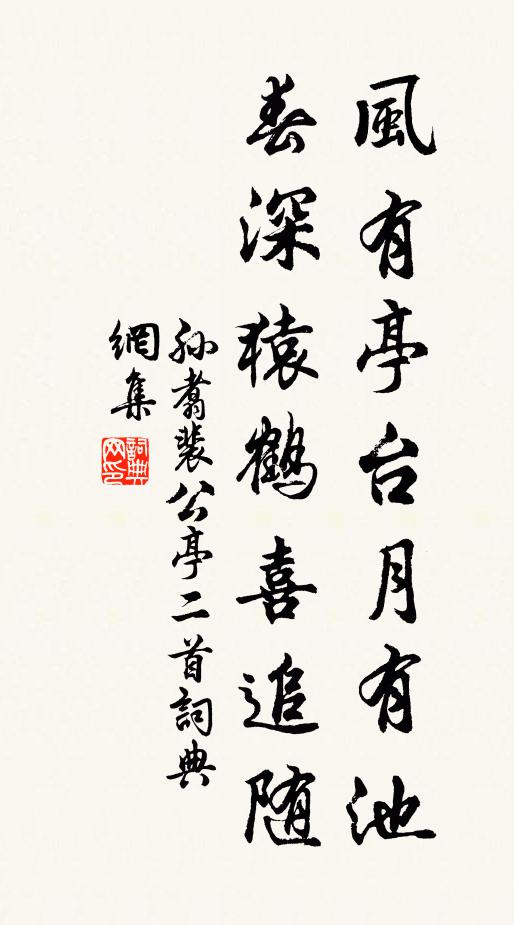 風有亭台月有池
春深猿鶴喜追随
孙翥裴公亭二首詞典
網集
詞典网印